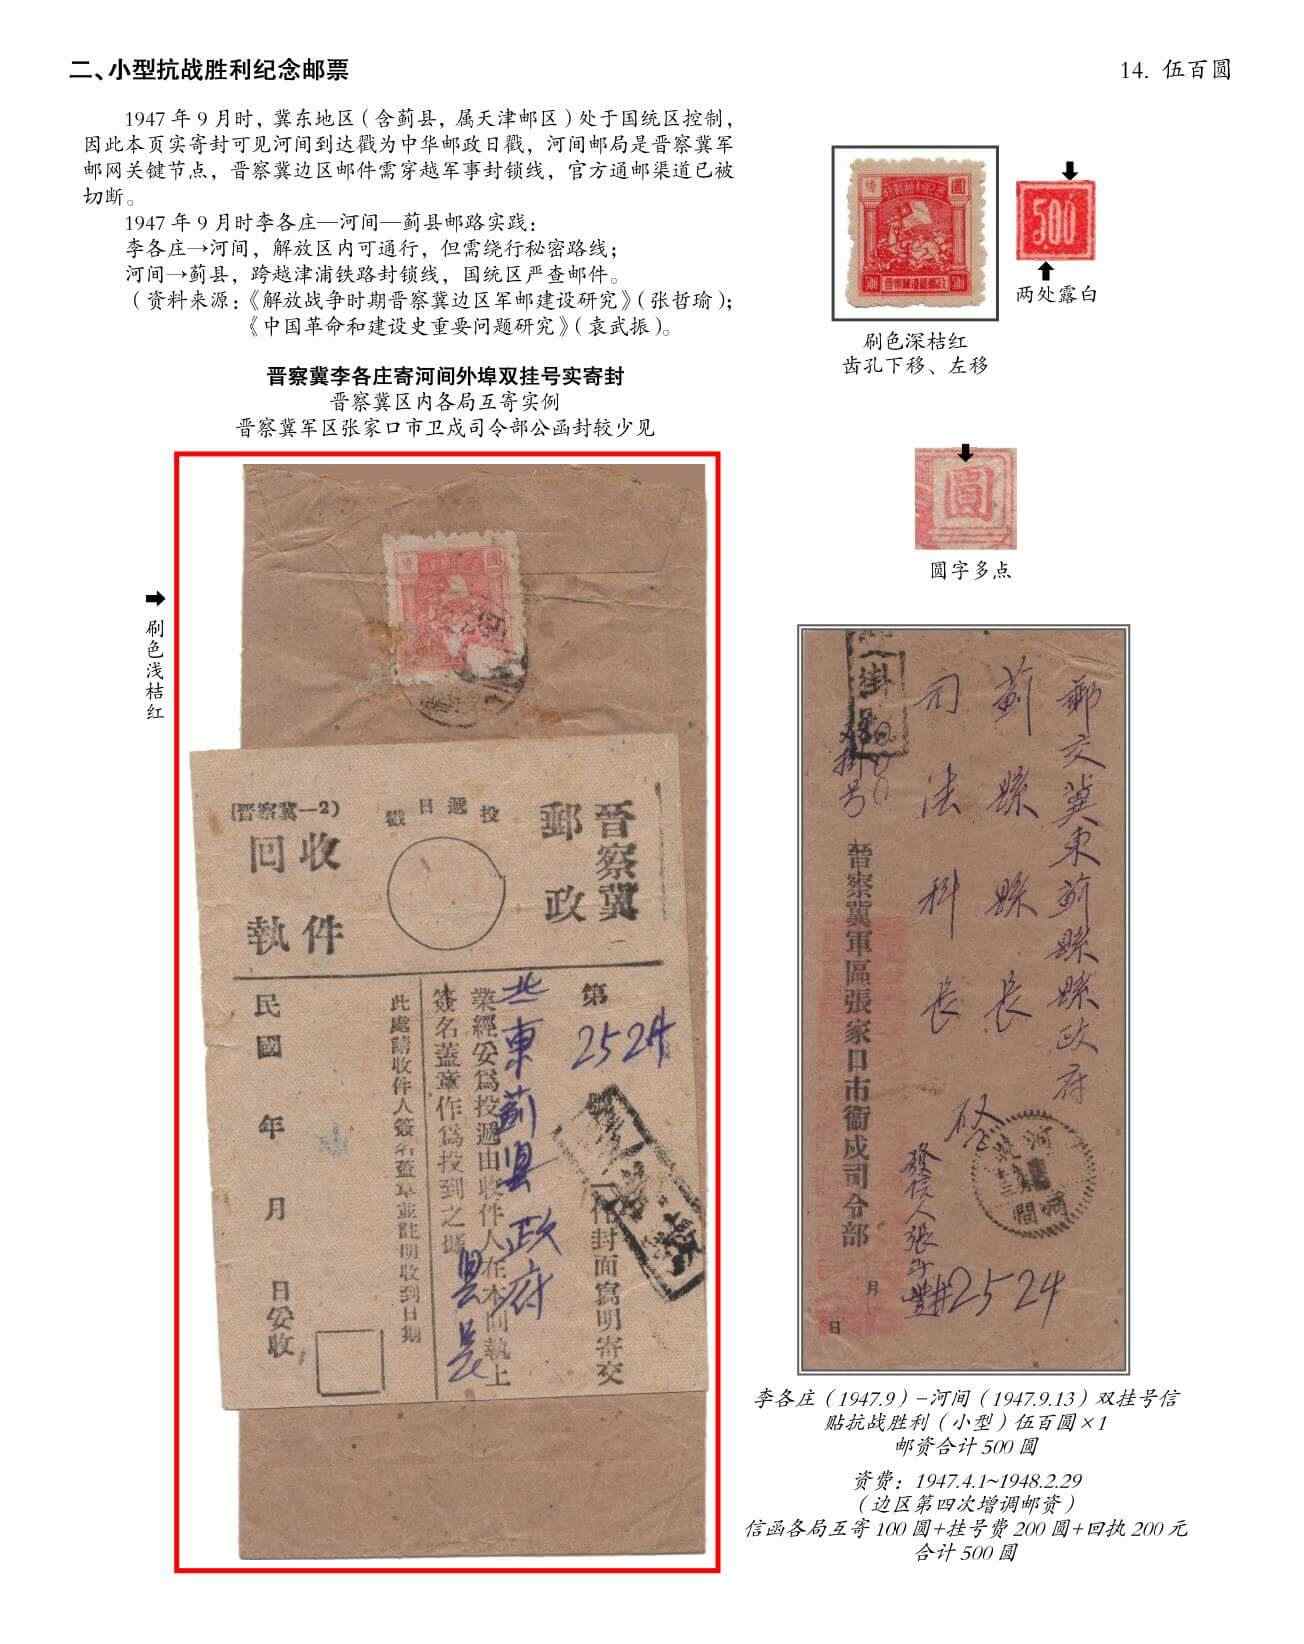 二、小型抗战胜利纪念邮票
14. 伍百圆
1947 年 9 月时，冀东地区（含蓟县，属天津邮区）处于国统区控制，
因此本页实寄封可见河间到达戳为中华邮政日戳，河间邮局是晋察冀军
邮网关键节点，晋察冀边区邮件需穿越军事封锁线，官方通邮渠道已被
切断。
1947 年 9 月时李各庄—河间—蓟县邮路实践：
李各庄→河间，解放区内可通行，但需绕行秘密路线；
河间→蓟县，跨越津浦铁路封锁线，国统区严查邮件。
（资料来源：《解放战争时期晋察冀边区军邮建设研究》（张哲瑜）；
《中国革命和建设史重要问题研究》（袁武振）。
500
两处露白
刷色深桔红
齿孔下移、左移
晋察冀李各庄寄河间外埠双挂号实寄封
晋察冀区内各局互寄实例
晋察冀军区张家口市卫戍司令部公函封较少见
圓
圆字多点
刷色浅桔红
晋察冀
郵政
投遞日戳
(晋察冀—2)
收件
回執
第
2524
一件封面寫明寄交
北東蓟县政府
县長
業經妥爲投遞由收件人在本回執上
簽名蓋章作爲投到之據
此處請收件人簽名蓋章並註明收到日期
民國 年 月 日妥收
郵交冀東薊縣縣政府
薊縣縣長
司法科長
掛号
双掛号
晉察冀軍區張家口市衞戍司令部
發信人張
河間
月
日
2524
李各庄（1947.9）–河间（1947.9.13）双挂号信
贴抗战胜利（小型）伍百圆×1
邮资合计 500 圆
资费：1947.4.1~1948.2.29
（边区第四次增调邮资）
信函各局互寄 100 圆+挂号费 200 圆+回执 200 元
合计 500 圆